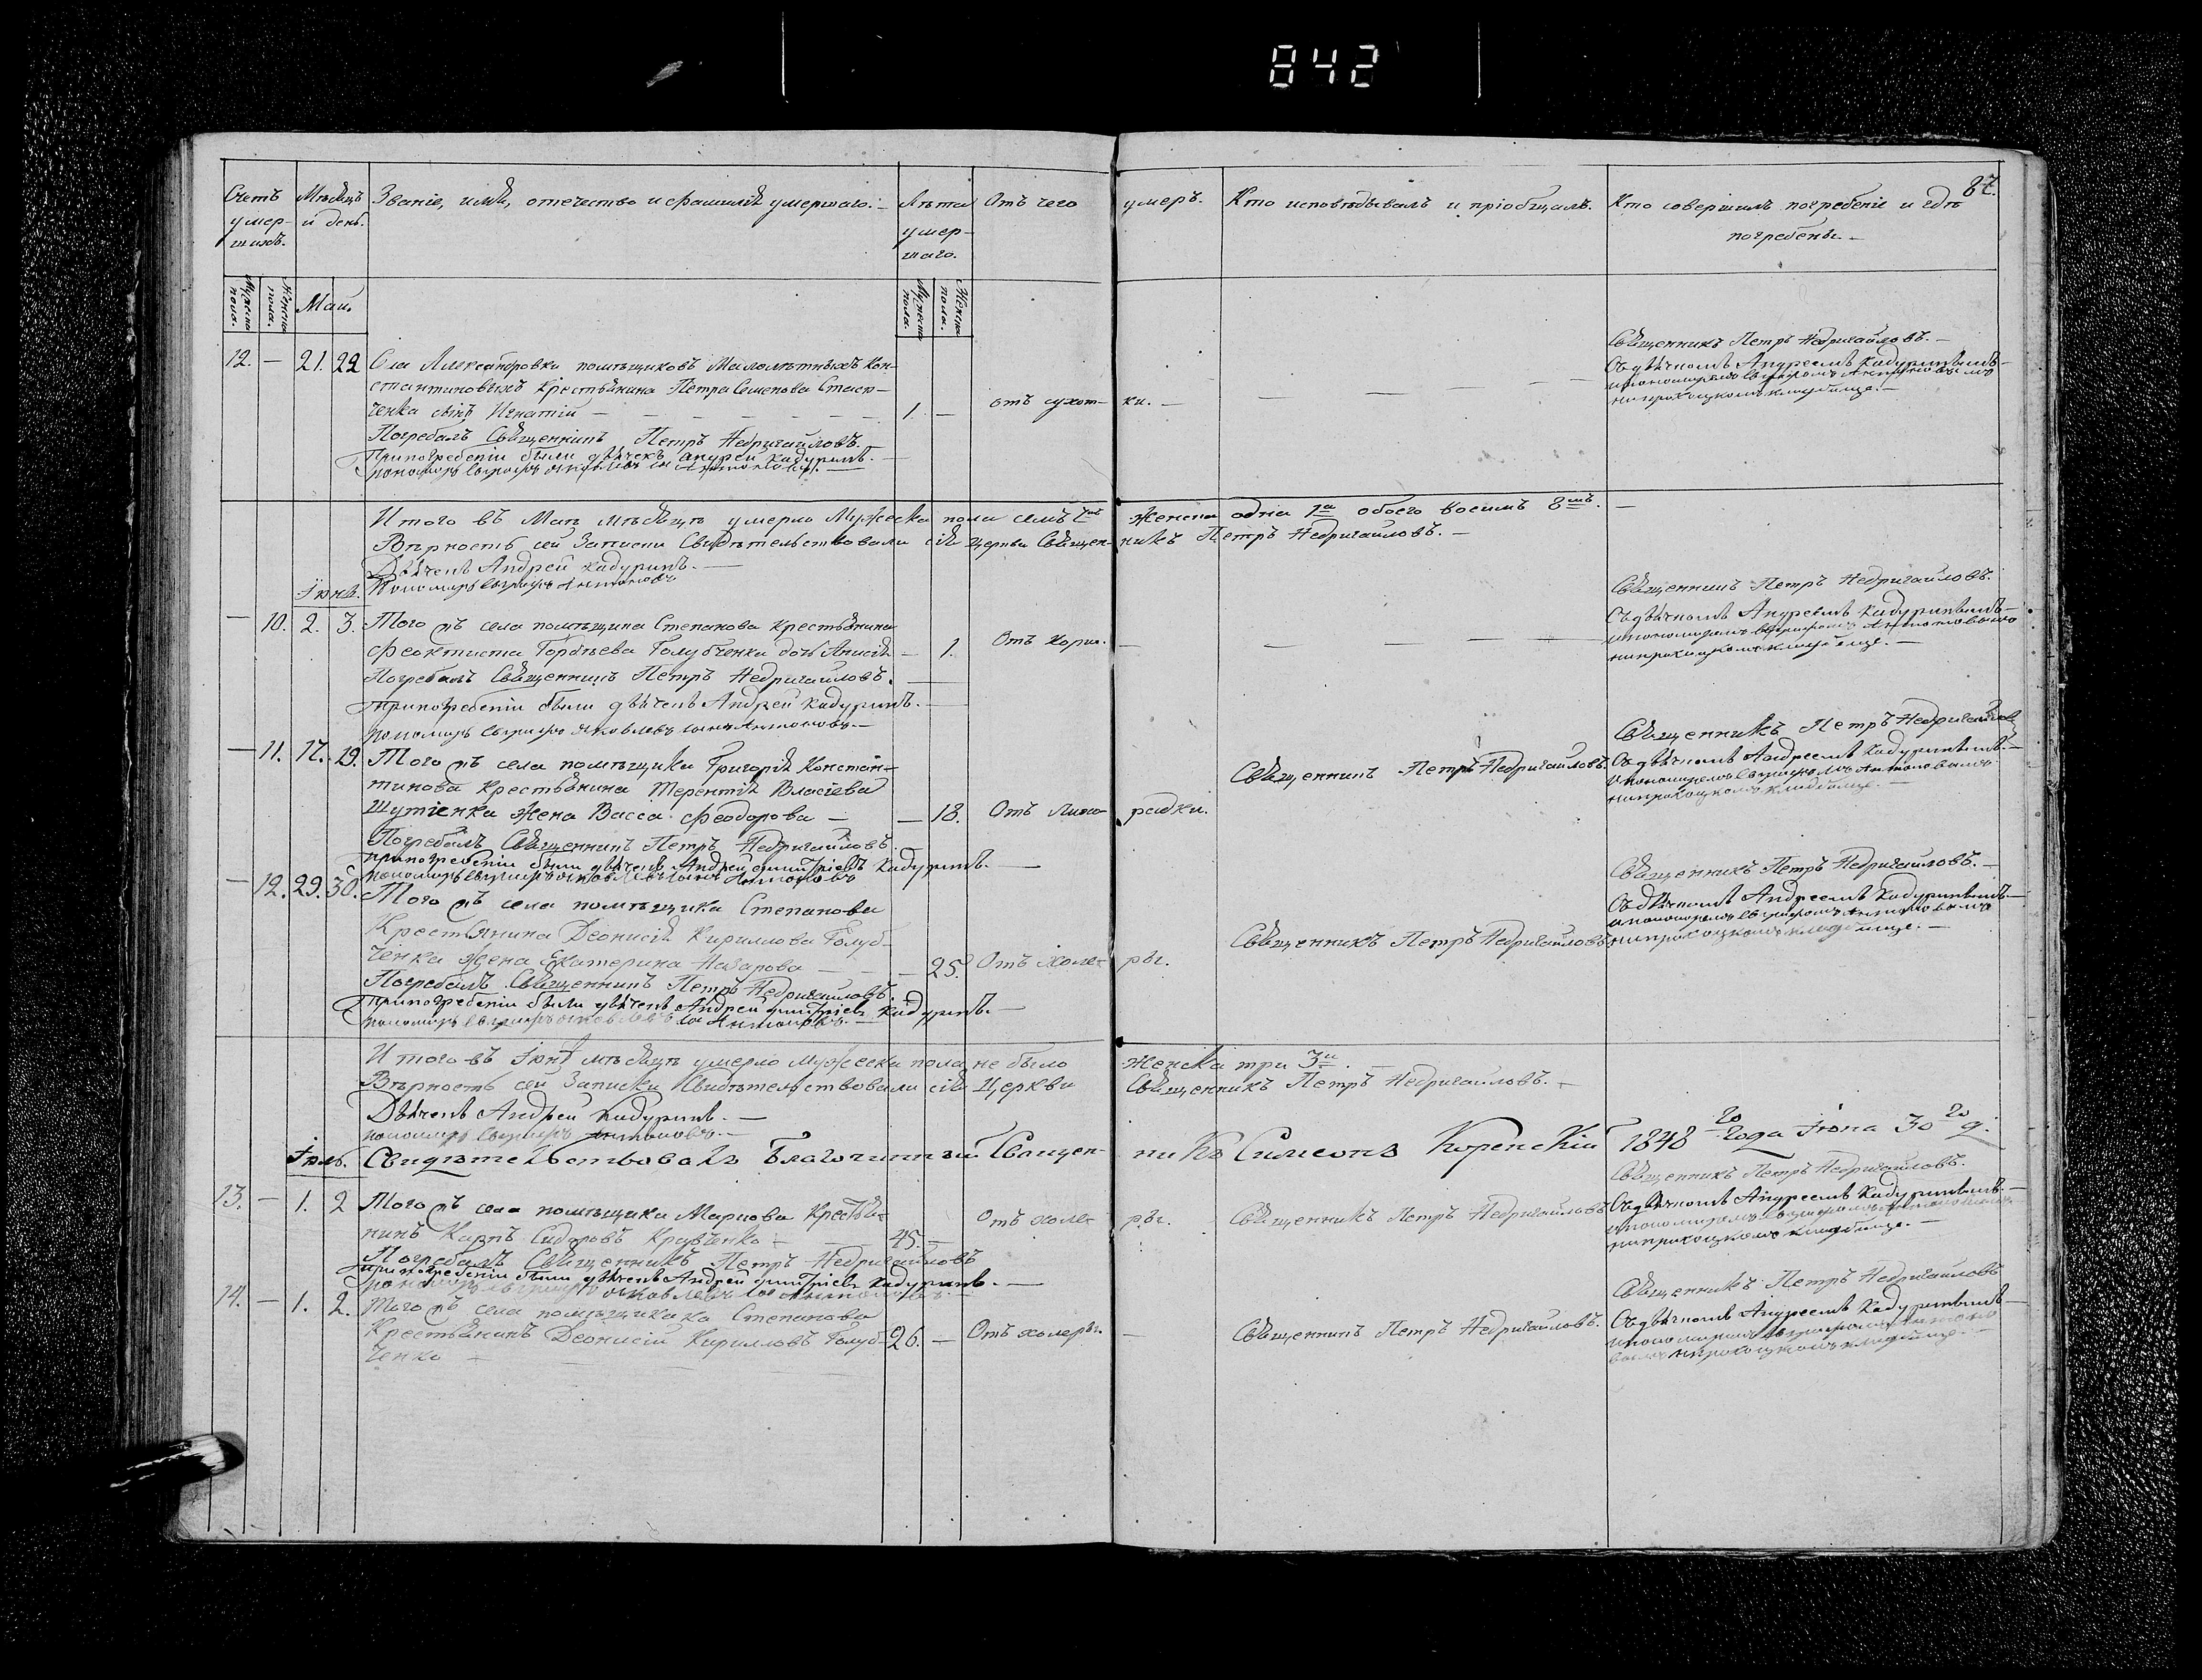 842
87.
Счетъ умер- шихъ.
Мѣсяцъ и день.
Званіе, имя, отечество и фамилія умершаго. —
Лѣта умер- шаго.
Отъ чего умеръ.
Кто исповѣдывалъ и пріобщалъ.
Кто совершилъ погребеніе и гдѣ погребены. —
Мужеска пола. Женска пола. Маи. Мужеска пола. Женска пола.
12. — 21. 22
Села Александровки помѣщиковъ Малолѣтныхъ Кон-
стантиновыхъ Крестьянина Петра Семенова Стасен-
ченка сынъ Игнатій — 1. — отъ сухот- ки. —
Погребалъ Священникъ Петръ Недригайловъ.
При погребеніи были дьячекъ Андрей Кадуринъ. —
Священникъ Петръ Недригайловъ. —
Съ дьячкомъ Андреемъ Кадуринымъ —
на приходскомъ кладбище. —
Итого въ Маѣ мѣсяцѣ умерло Мужеска пола семь 7мь Женска одна 1а обоего восимь 8мь. —
Вѣрность сей Записки Свидѣтельствовали сія Церкви Священ- никъ Петръ Недригайловъ. —
Дьячекъ Андрей Кадуринъ. —
Пономарь Антоновъ
Іюнь.
— 10. 2. 3. Того жъ села помѣщика Степанова крестьянина
Феоктиста Гордѣева Голубченка дочь Анисія — 1. Отъ Кориі. —
Погребалъ Священникъ Петръ Недригайловъ. —
При погребеніи были дьячекъ Андрей Кадуринъ. —
пономарь Яковлевъ сынъ Антоновъ. —
Священникъ Петръ Недригайловъ.
Съ дьячкомъ Андреемъ Кадуринымъ —
на приходскомъ кладбище. —
— 11. 17. 19. Того жъ села помѣщика Григорія Констан-
тинова Крестьянина Терентія Власіева
Шутіенка жена Васса Феодорова — — 18. Отъ лихо- радки.
Погребалъ Священникъ Петръ Недригайловъ.
При погребеніи были дьячекъ Андрей Дмитріевъ Кадуринъ. —
Священникъ Петръ Недригайловъ.
Священникъ Петръ Недригайловъ
Съ дьячкомъ Андреемъ Кадуринымъ —
на приходскомъ кладбище. —
— 12. 29. 30. Того жъ села помѣщика Степанова
Крестьянина Деонисія Кириллова Голуб-
ченка жена Екатерина Назарова — — 25. Отъ холе- ры.
Погребалъ Священникъ Петръ Недригайловъ.
При погребеніи были дьячекъ Андрей Дмитріевъ Кадуринъ. —
Священникъ Петръ Недригайловъ
Священникъ Петръ Недригайловъ. —
Съ дьячкомъ Андреемъ Кадуринымъ —
на приходскомъ кладбище. —
Итого въ Іюнѣ мѣсяцѣ умерло мужеска пола не было Женска три 3и. —
Вѣрность сей Записки Свидѣтельствовали сія Церкви Священникъ Петръ Недригайловъ. —
Дьячекъ Андрей Кадуринъ. —
пономарь Антоновъ. —
Іюль. Свидѣтельствовалъ Благочинный Священ- никъ Симеонъ Коренскій 1848го года Іюня 30го д.
13. — 1. 2 Того жъ села помѣщика Маркова Крестья-
нинъ Карпъ Сидоровъ Кравченко — 45. — Отъ холе- ры.
Погребалъ Священникъ Петръ Недригайловъ
При погребеніи были дьячекъ Андрей Дмитріевъ Кадуринъ. —
Священникъ Петръ Недригайловъ
Священникъ Петръ Недригайловъ.
Съ дьячкомъ Андреемъ Кадуринымъ —
на приходскомъ кладбище. —
14. — 1. 2. Того жъ села помѣщикака Степанова
Крестьянинъ Деонисій Кирилловъ Голуб- 26. — Отъ холеры. —
ченко —
Священникъ Петръ Недригайловъ.
Священникъ Петръ Недригайловъ
Съ дьячкомъ Андреемъ Кадуринымъ —
на приходскомъ кладбище. —